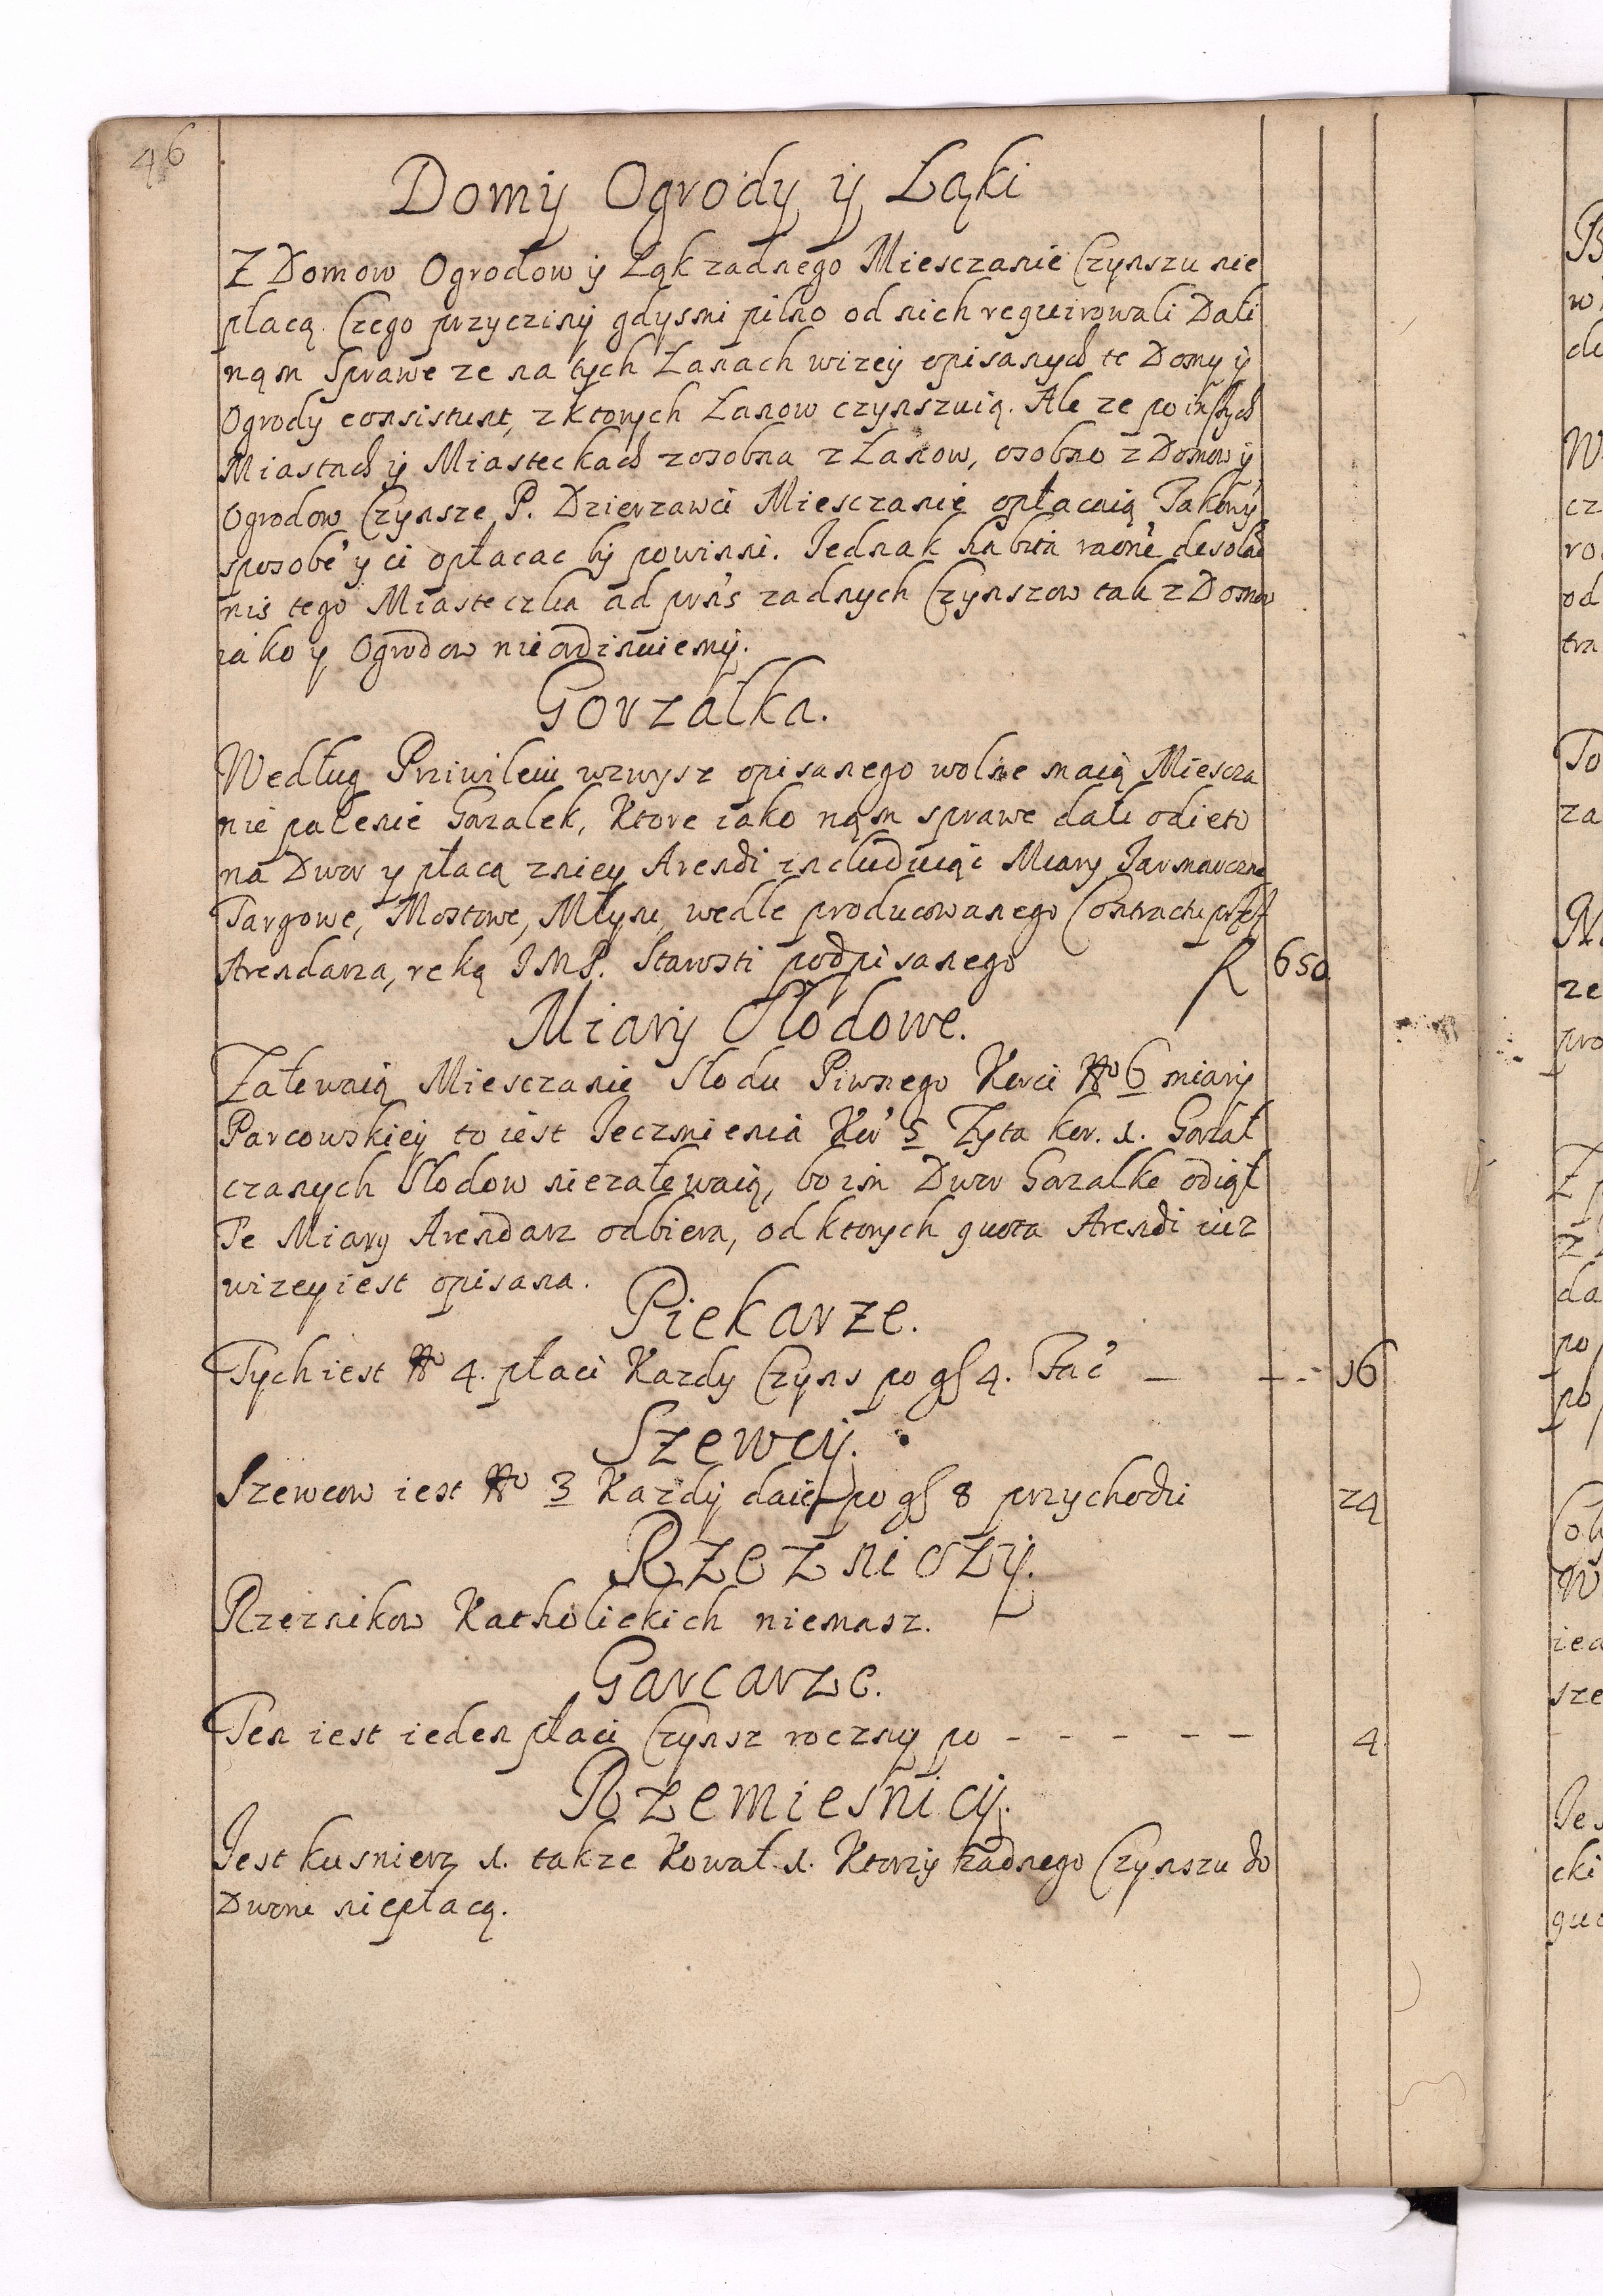 46
Domÿ Ogrody ÿ Łąki
Z Domow Ogrodow ÿ Łąk zadnego Miesczanie Czÿnszu nie
płacą. Czego przyczinÿ gdysmi pilno od nich requirowali Dali
nąm Sprawe ze na tych Łanach wizeÿ opisanych te Domy ÿ
Ogrody consistunt, z ktorych Łanow czynszuią. Ale ze po inszych
Miastach ÿ Miasteckach zosobna z Łanow, osobno z Domow ÿ
Ogrodow Czynsze P. Dzierzawci Miesczanie opłacaią Takowÿ
sposobe' y ci opłacac bÿ powinni. Jednak habita raone desolao
nis tego Miasteczka ad prns zadnych Czynszow tak z Domow
iako y Ogrodow
Gorzałka.
Według Prziwileiu wzwysz opisanego wolne maią Miescza
nie palenie Gorzalek, Ktore iako nąm sprawe dali odieto
na Dwor y płacą zniey Arendi includuiąc Miary Jarmarczne
Targowe, Mostowe, Młyn, wedle producowanego Contractu przez
Arendarza, reką JMP. Starosti podpisanego f 650
Miarÿ Słodowe.
Zalewaią Miesczanie Słodu Piwnego Korci No 6 miarÿ
Parcowskieÿ to iest Jeczmienia Kor' 5 Zyta kor. 1. Gorzał
czanych Słodow niezalewaią, bo im Dwor Gorzalke odiął
Te Miary Arendarz odbiera, od ktorych quota Arendi iuz
wizey iest opisana.
Piekarze.
Tych iest No 4. płaci Kazdy Czyns po gs 4. Fać – – - 16
Szewcÿ.
Szewcow iest No 3 Kazdÿ daie po gs 8 przychodzi 24
Rzezniczÿ.
Rzeznikow Katholickich niemasz.
Garcarze.
Ten iest ieden płaci Czynsz roczny po - - - - - 4
Rzemiesnicÿ.
Jest kusnierz 1. takze Kowal 1. Ktorzÿ zadnego Czynszu do
Dworu niepłacą.